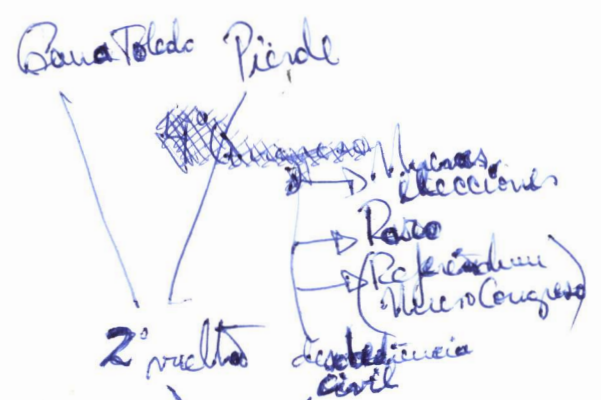 Gana Toledo Pierde
Nuevas
elecciones
Paro
(Referéndum
Nuevo Congreso)
2º vuelta desobediencia
civil